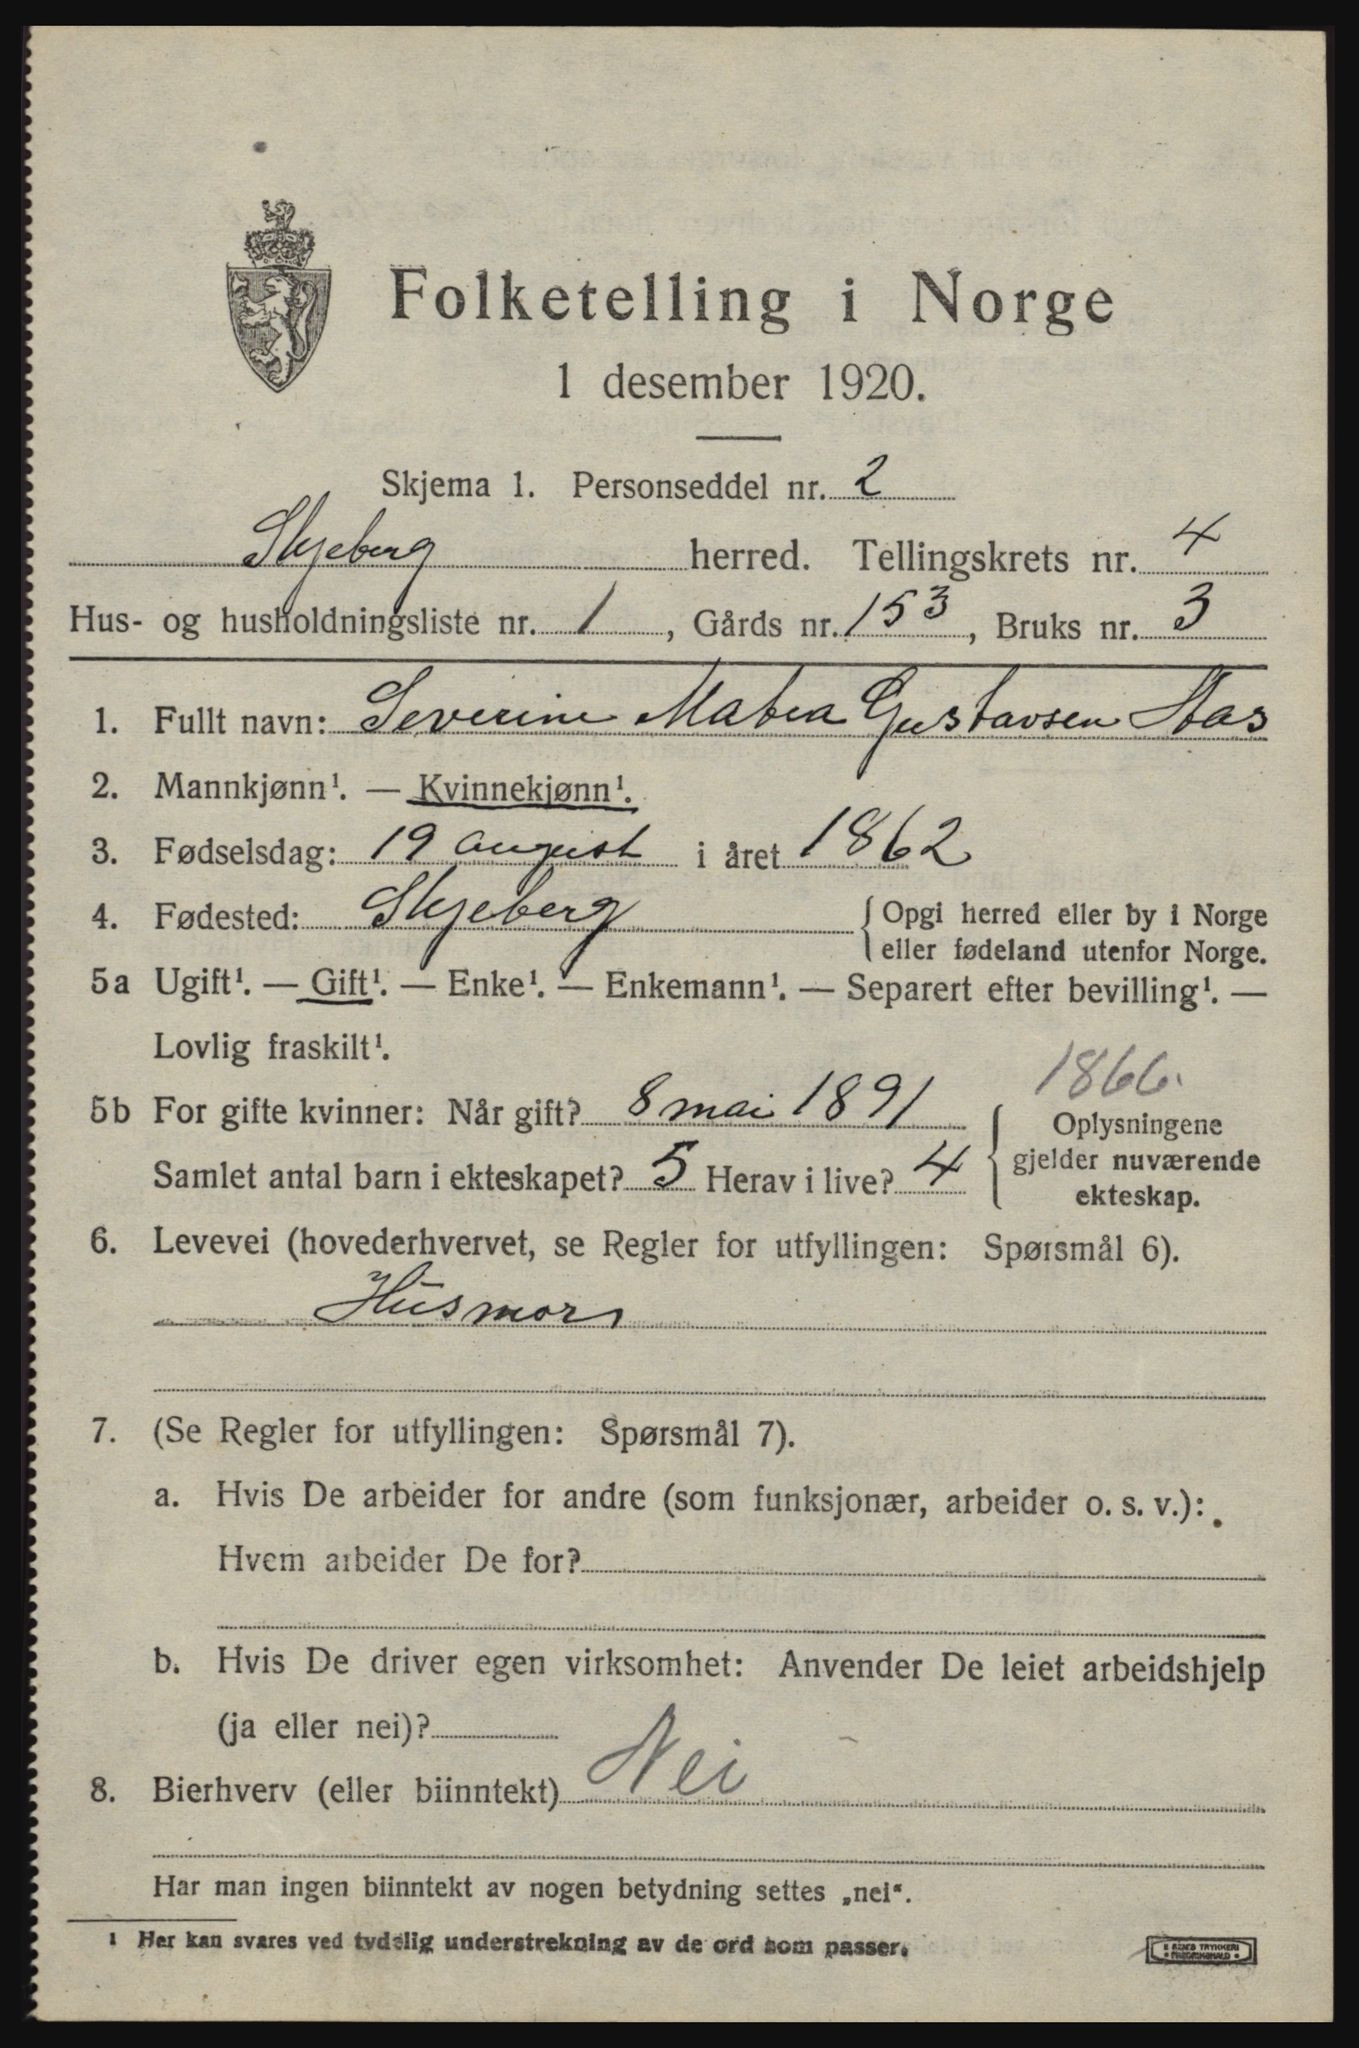 Folketelling i Norge
1 desember 1920.
Skjema 1. Personseddel nr. 2
Skjeberg herred. Tellingskrets nr. 4
Hus- og husholdningsliste nr. 1, Gårds nr. 153, Bruks nr. 3
1. Fullt navn: Severine Matea Gustavsen Aas
2. Mannkjønn¹. — Kvinnekjønn¹.
3. Fødselsdag: 19 august i året 1862
4. Fødested: Skjeberg { Opgi herred eller by i Norge
eller fødeland utenfor Norge.
5a Ugift¹. — Gift¹. — Enke¹. — Enkemann¹. — Separert efter bevilling¹. —
Lovlig fraskilt¹.
1866.
5b For gifte kvinner: Når gift? 8 mai 1891 { Oplysningene
gjelder nuværende
ekteskap.
Samlet antal barn i ekteskapet? 5 Herav i live? 4
6. Levevei (hovederhvervet, se Regler for utfyllingen: Spørsmål 6).
Husmor
7. (Se Regler for utfyllingen: Spørsmål 7).
a. Hvis De arbeider for andre (som funksjonær, arbeider o. s. v.):
Hvem arbeider De for?
b. Hvis De driver egen virksomhet: Anvender De leiet arbeidshjelp
(ja eller nei)?
8. Bierhverv (eller biinntekt) Nei
Har man ingen biinntekt av nogen betydning settes „nei“.
¹ Her kan svares ved tydelig understrekning av de ord som passer.